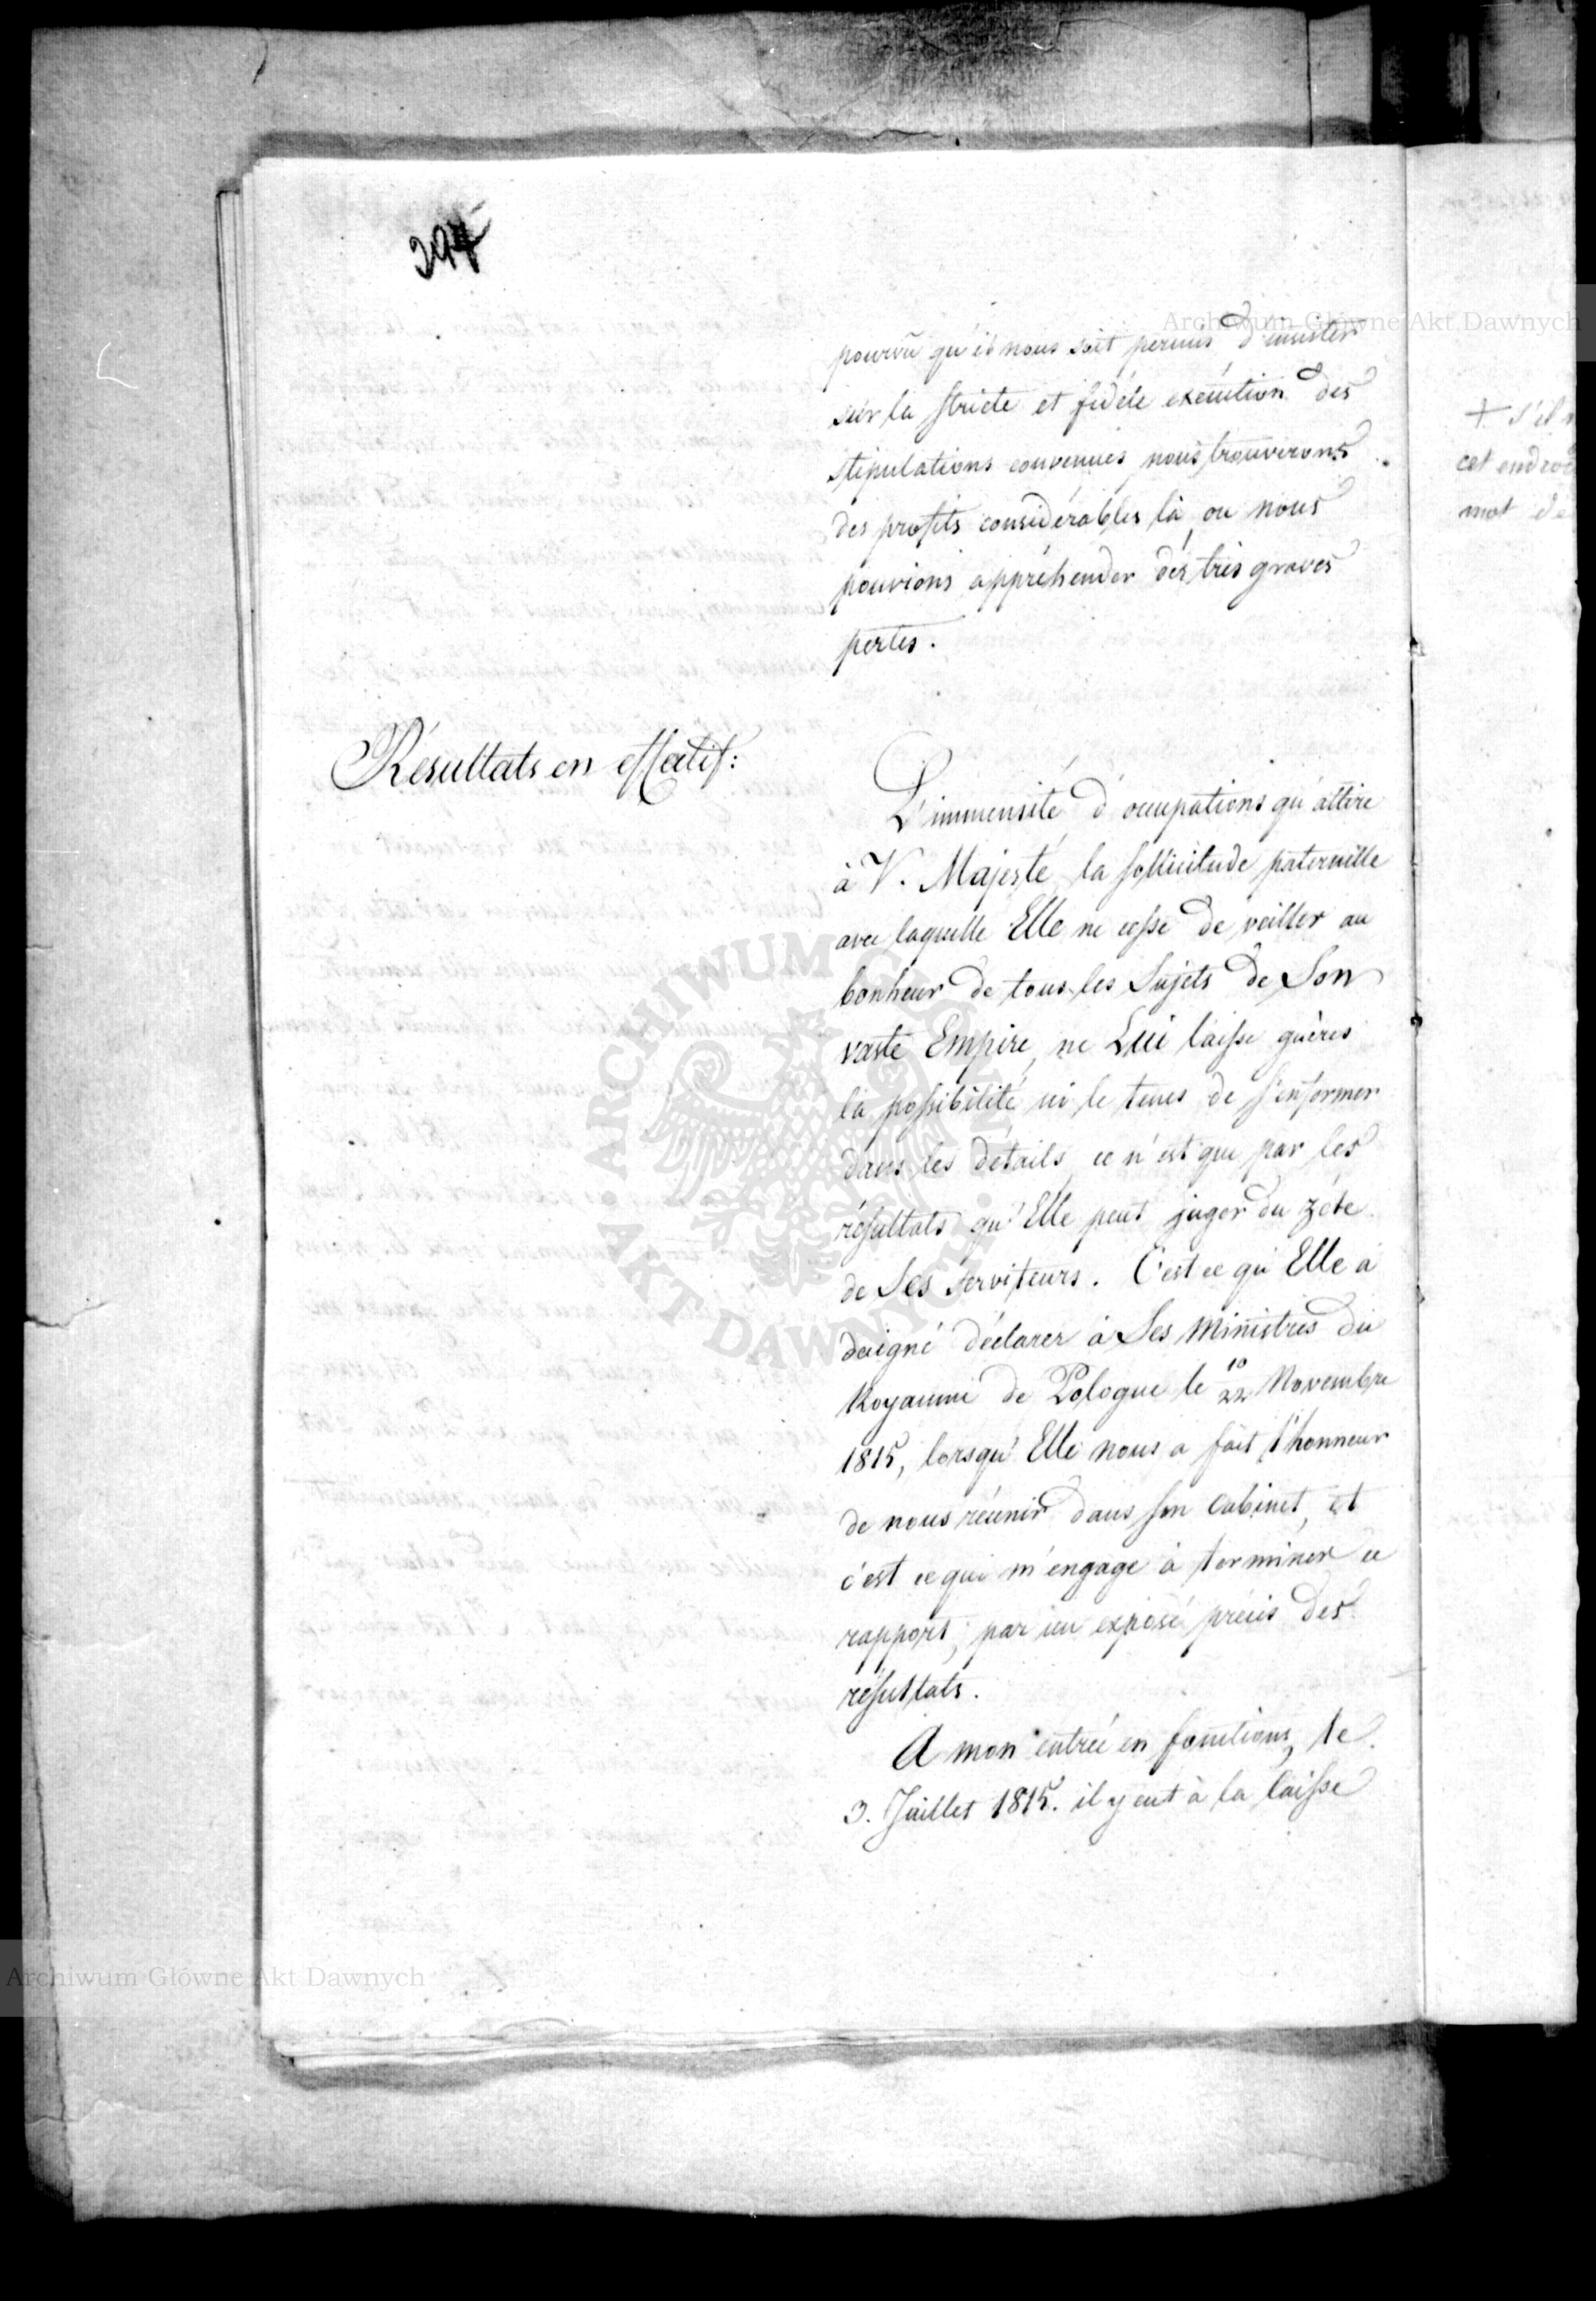 294
pourvû qu'il nous soit permis d'insister
sur la stricte et fidéle exécution des
stipulations convenues nous trouverons
des profits considérables là, ou nous
pouvions appréhender des très graves
pertes.
Résultats en effectif:
L'immensité d'occupations qu'attire
à V. Majesté la sollicitude paternelle
avec laquelle Elle ne cesse de veiller au
bonheur de tous les Sujets de Son
vaste Empire, ne Lui laisse guères
la possibilité ni le tems de s'informer
dans les détails, ce n'est que par les
résultats qu'Elle peut juger du zéle
de Ses serviteurs. C'est ce qu'Elle a
daigné déclarer à Ses Ministres du
Royaume de Pologne le 10/22 Novembre
1815, lorsqu'Elle nous a fait l'honneur
de nous réunir dans son Cabinet, et
c'est ce qui m'engage à terminer ce
rapport, par un exposé précis des
résultats.
A mon entrée en fonctions, le
3. Juillet 1815. il y eut à la Caisse
+ s'il
cet endroi
mot de
Archiwum Główne Akt Dawnych
ARCHIWUM GŁÓWNE AKT DAWNYCH
Archiwum Główne Akt Dawnych